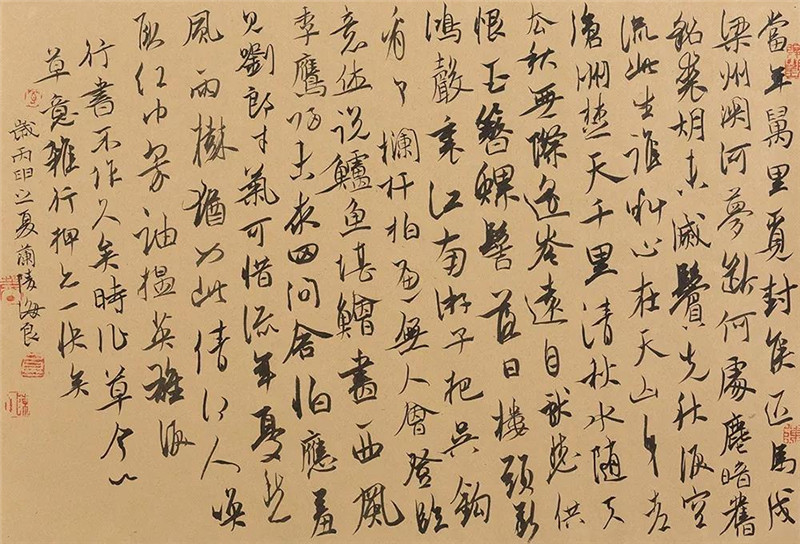 當年萬里覓封侯匹馬戍
梁州関河夢斷何處塵暗舊
貂裘胡未滅鬢先秋淚空
流此生誰料心在天山身老
滄洲楚天千里清秋水隨天
去秋無際遙岑遠目獻愁供
恨玉簪螺髻落日樓頭斷
鴻聲裏江南游子把吳鈎
看了欄杆拍遍無人會登臨
意休說鱸魚堪鱠盡西風
季鷹歸未求田問舍怕應羞
見劉郎才氣可惜流年憂愁
風雨樹猶如此倩何人喚
取紅巾翠袖揾英雄淚
行書不作久矣時作草今以
草意雜行押之一快矣
歲丙申之夏蘭陵海良